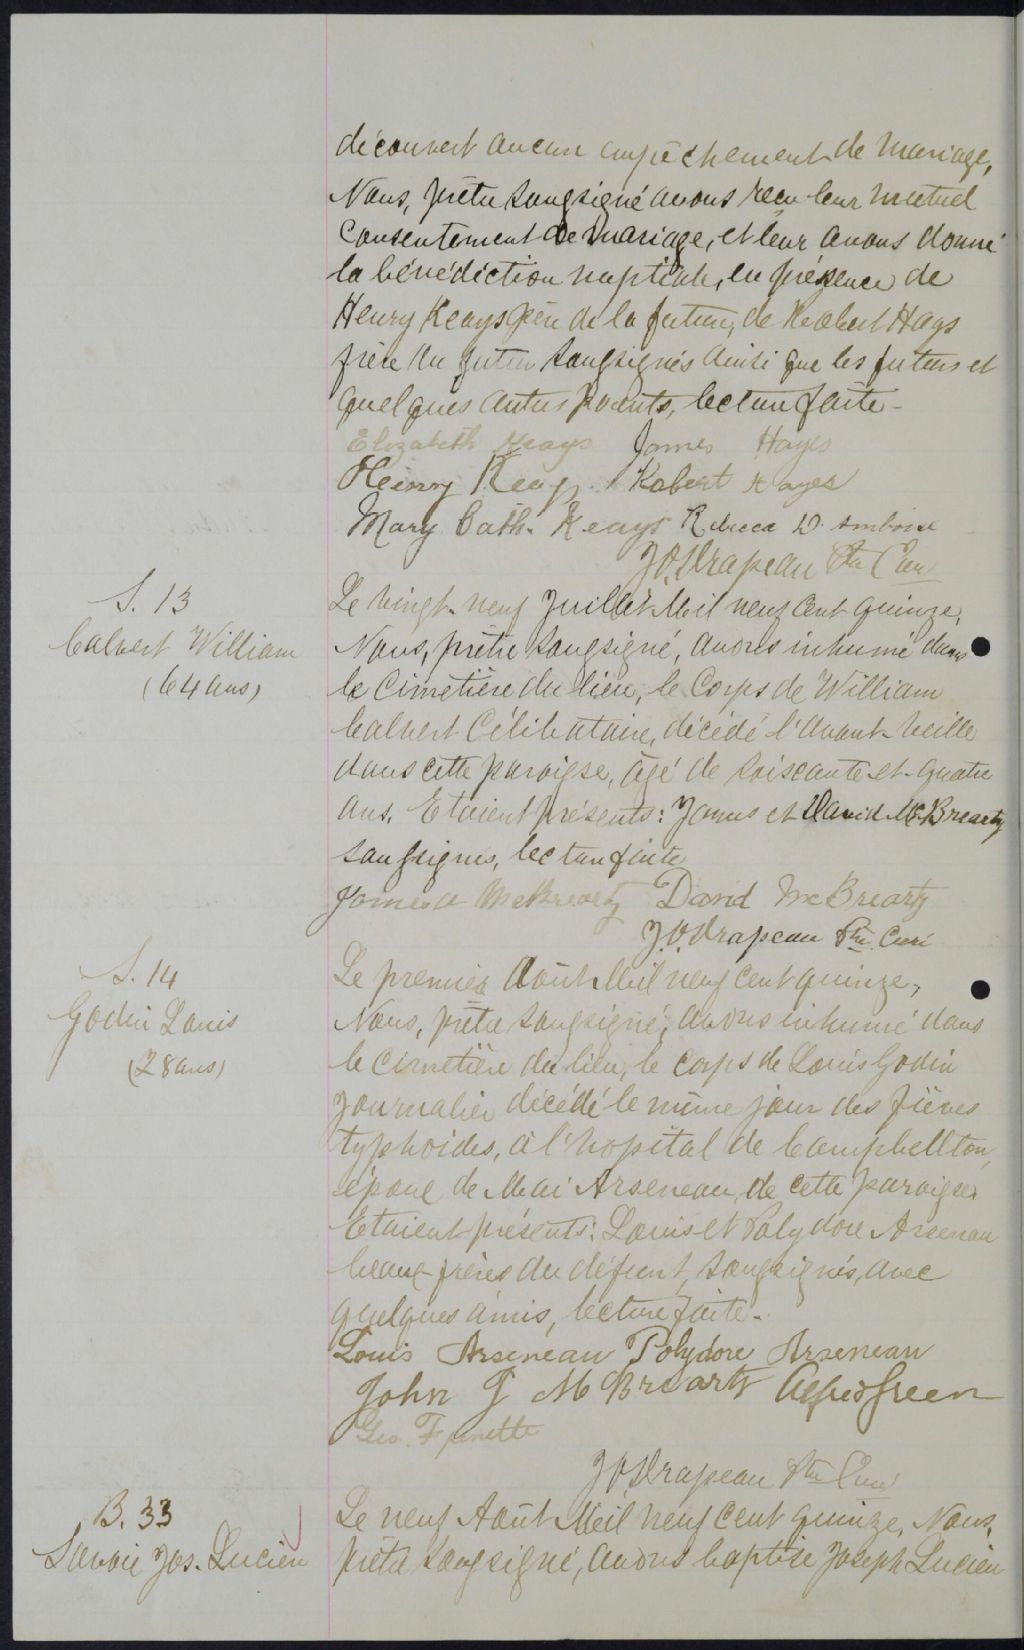 découvert aucun empêchement de mariage,
Nous, prêtre soussigné avons reçu leur mutuel
Consentement de mariage, et leur avons donné
la bénédiction nuptiale, en présence de
Henry Keays père de la future, de Robert Hays
frère du futur soussignés ainsi que les futurs et
quelques autres parents, lecture faite-
Elizabeth Keays James Hayes
Henry Keays Robert Hayes
Mary Cath. Keays Rebecca D. Amboise
J.O. Drapeau Ptre Curé
S. 13
Calvert William
(64 ans)
Le vingt-neuf Juillet Mil neuf Cent quinze,
Nous, prêtre soussigné, avons inhumé dans
le Cimetière du lieu, le Corps de William
Calvert Célibataire, décédé l'avant-veille
dans cette paroisse, âgé de soixante-et-quatre
ans. Etaient présents: James et David McBrearty
soussignés, lecture faite
James McBrearty David McBrearty
J.O. Drapeau Ptre Curé
S. 14
Godin Louis
(28 ans)
Le premier Août Mil neuf Cent quinze,
Nous, prêtre soussigné, avons inhumé dans
le Cimetière du lieu, le corps de Louis Godin
Journalier décédé le même jour des fièvres
typhoides, à l'hopital de Campbellton,
époux de Marie Arseneau, de cette paroisse
Etaient présents: Louis et Polydore Arseneau
beaux-frères du défunt, soussignés, avec
quelques amis, lecture faite-
Louis Arseneau Polydore Arseneau
John J McBrearty Alfred Green
Geo. Finette
J.O. Drapeau Ptre Curé
B. 33
Savoie Jos. Lucien
Le neuf Août Mil neuf Cent quinze, Nous,
prêtre soussigné, avons baptisé Joseph Lucien